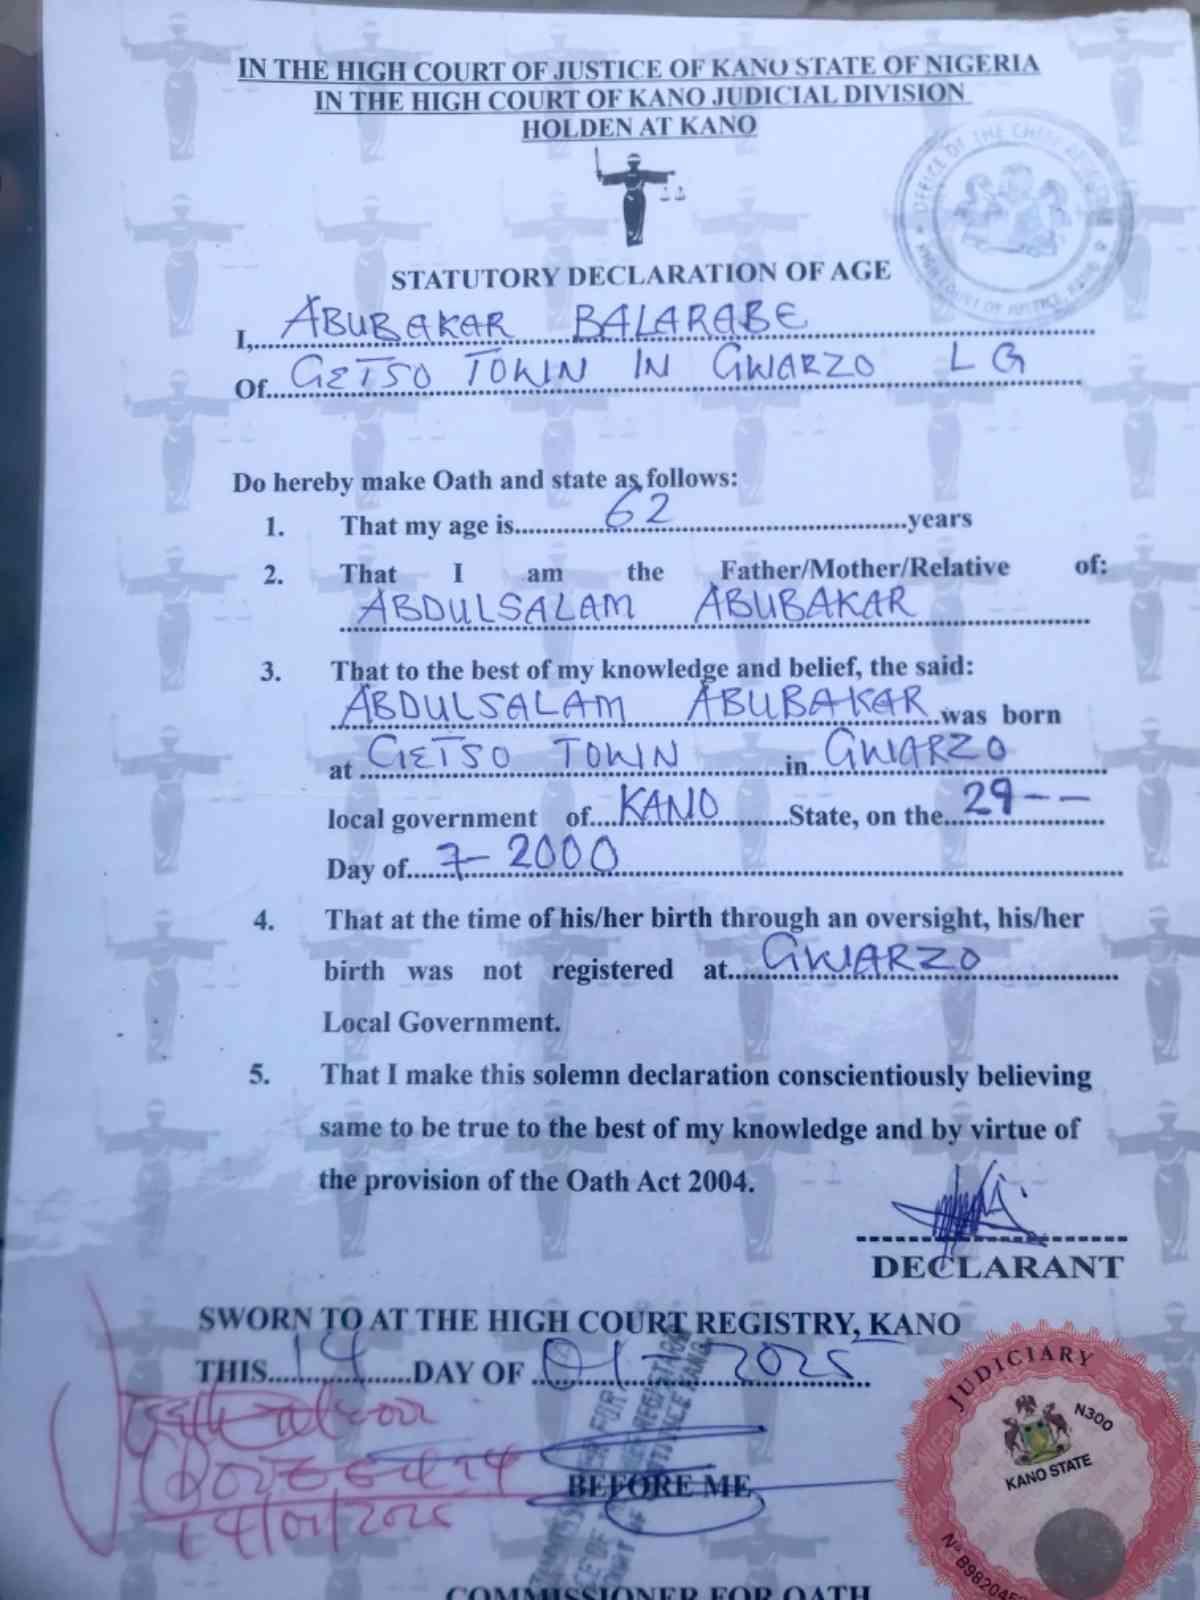 IN THE HIGH COURT OF JUSTICE OF KANO STATE OF NIGERIA
IN THE HIGH COURT OF KANO JUDICIAL DIVISION
HOLDEN AT KANO
STATUTORY DECLARATION OF AGE
I, ABUBAKAR BALARABE
Of GETSO TOWN IN GWARZO LG
Do hereby make Oath and state as follows:
1. That my age is 62 years
2. That I am the Father/Mother/Relative of:
ABDULSALAM ABUBAKAR
3. That to the best of my knowledge and belief, the said:
ABDULSALAM ABUBAKAR was born
at GETSO TOWN in GWARZO
local government of KANO State, on the 29--
Day of 7-2000
4. That at the time of his/her birth through an oversight, his/her
birth was not registered at GWARZO
Local Government.
5. That I make this solemn declaration conscientiously believing
same to be true to the best of my knowledge and by virtue of
the provision of the Oath Act 2004.
DECLARANT
SWORN TO AT THE HIGH COURT REGISTRY, KANO
THIS 14 DAY OF 01-2025
JUDICIARY
N300
KANO STATE
14/01/2025
BEFORE ME
COMMISSIONER FOR OATH